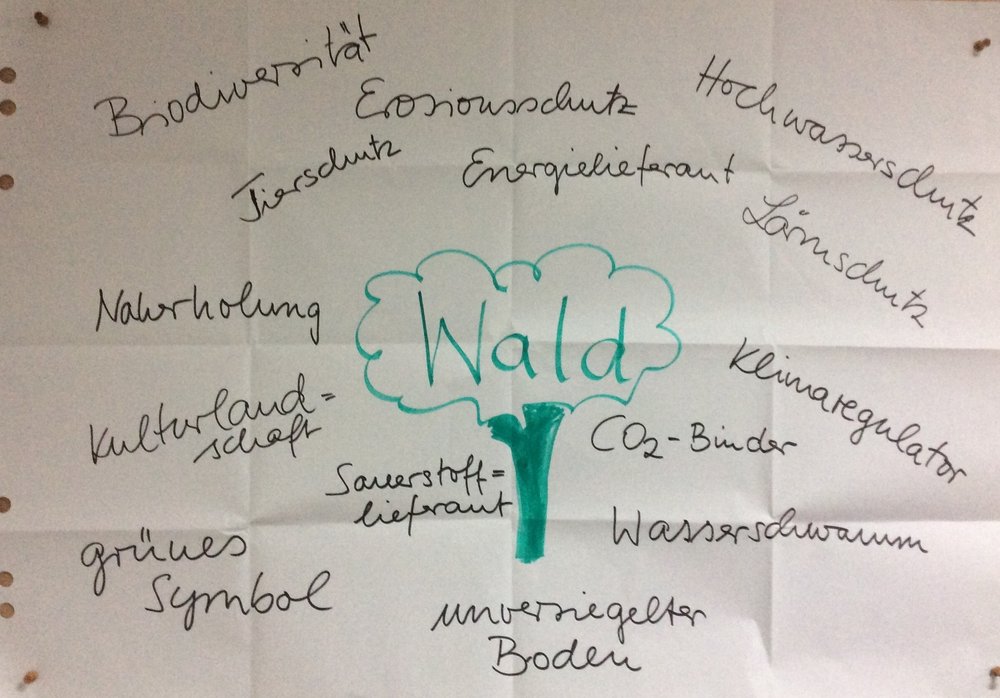 Biodiversität
Erosionsschutz
Hochwasserschutz
Tierschutz
Energielieferant
Lärmschutz
Naherholung
Wald
Klimaregulator
Kulturland=
schaft
CO₂-Binder
Sauerstoff=
lieferant
Wasserschwamm
grünes
Symbol
unversiegelter
Boden